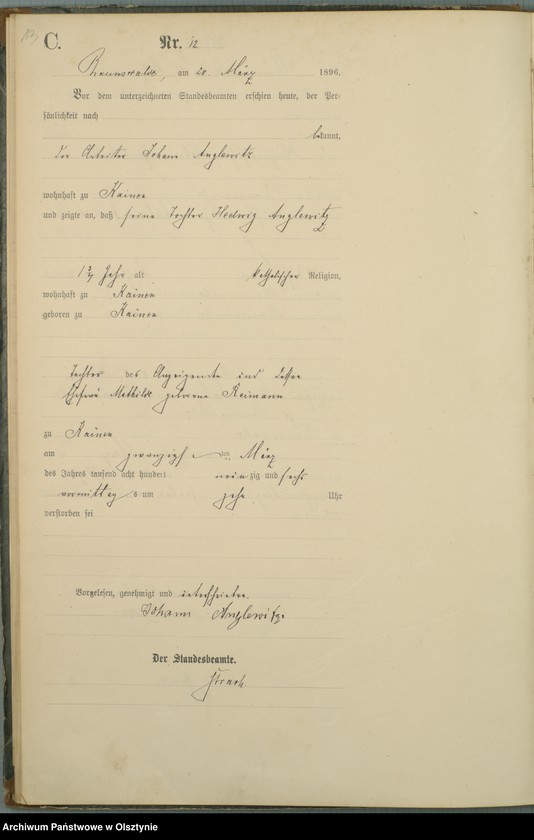 C. Nr. 12
Braunswalde, am 20. März 1896.
Vor dem unterzeichneten Standesbeamten erschien heute, der Per-
sönlichkeit nach
bekannt,
der Arbeiter Johann Anglewitz
wohnhaft zu Kainen
und zeigte an, daß seine Tochter Hedwig Anglewitz
1 3/4 Jahr alt katholischer Religion,
wohnhaft zu Kainen
geboren zu Kainen
Tochter des Anzeigenden und dessen
Ehefrau Mathilde geborene Reimann
zu Kainen
am zwanzigsten März
des Jahres tausend acht hundert neunzig und sechs
vormittags um zehn Uhr
verstorben sei
Vorgelesen, genehmigt und unterschrieben
Johann Anglewitz
Der Standesbeamte.
Archiwum Państwowe w Olsztynie